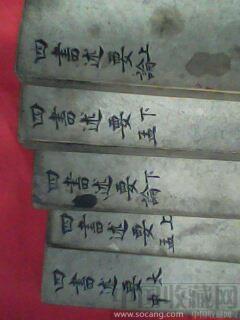 四書述要 論上
四書述要 下孟
四書述要 論下
四書述要 上孟
四書述要 大中
收藏网
www.socang.com 中国收藏网